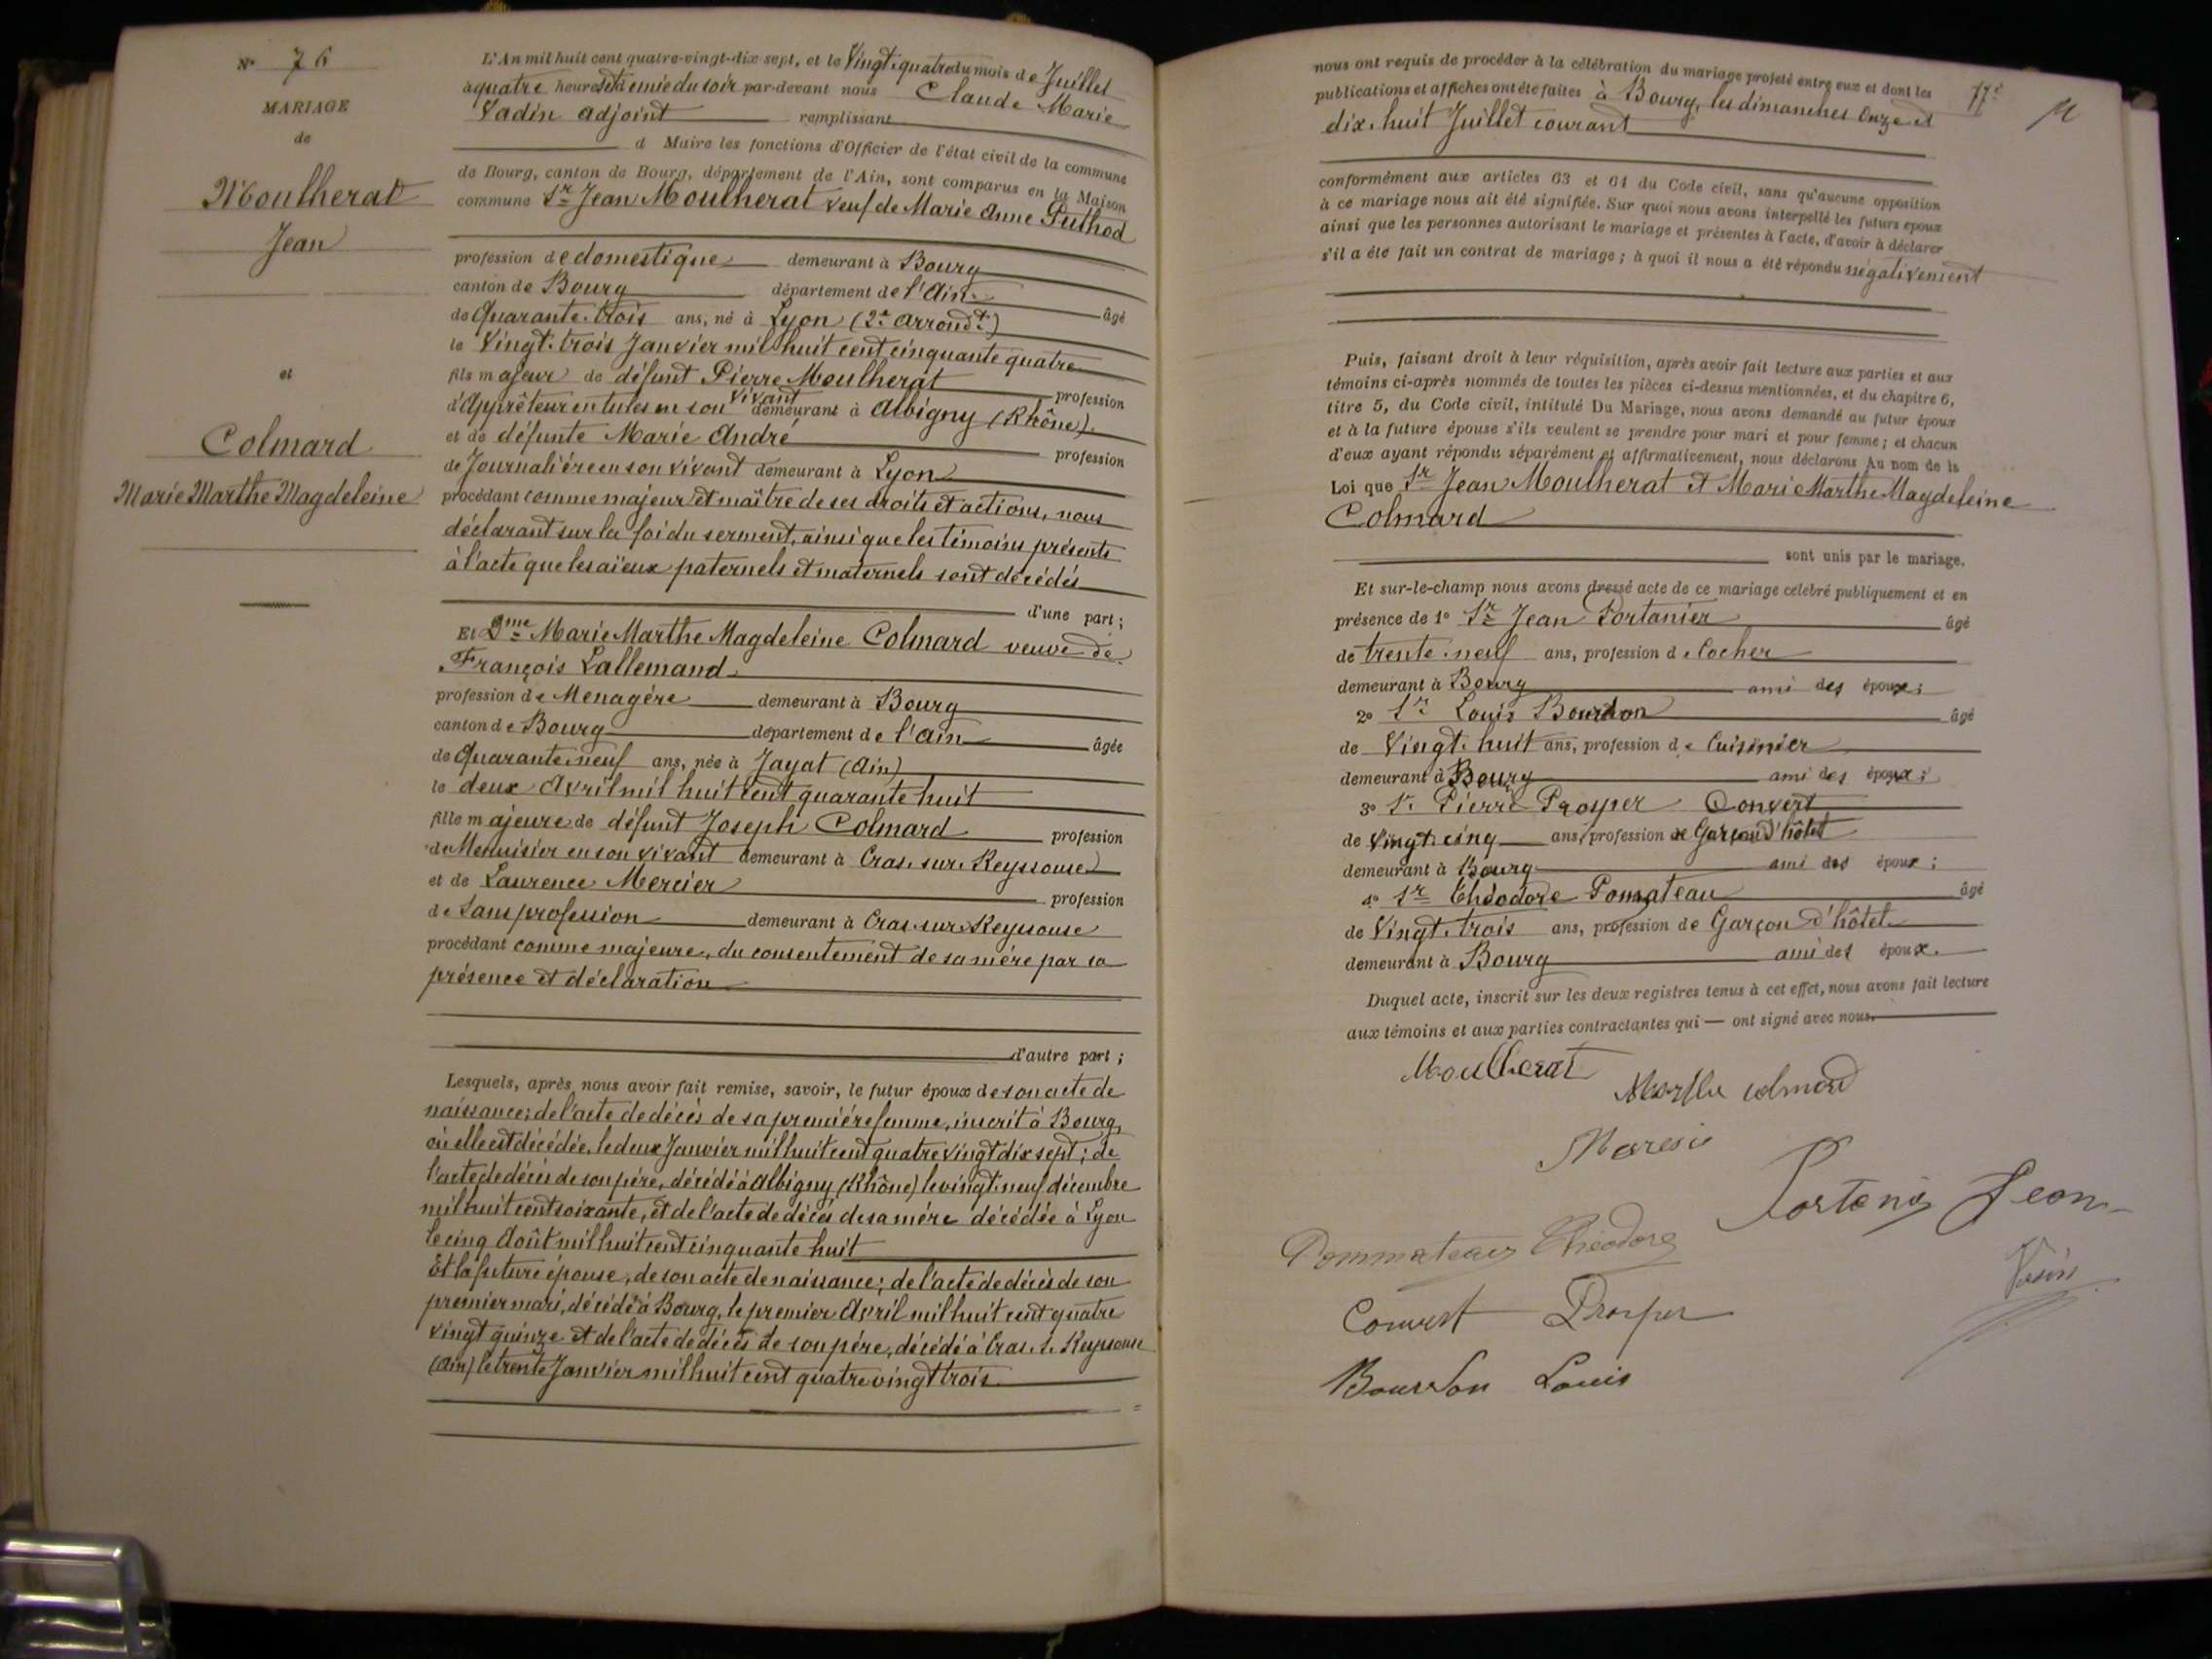 N° 76
MARIAGE
de
Moulherat
Jean
et
Colmard
Marie Marthe Magdeleine
L'An mil huit cent quatre-vingt-dix sept, et le Vingt-quatre du mois de Juillet
à quatre heures et demie du soir par-devant nous Claude Marie
Vadin adjoint remplissant
d Maire les fonctions d'Officier de l'état civil de la commune
de Bourg, canton de Bourg, département de l'Ain, sont comparus en la Maison
commune Sr Jean Moulherat veuf de Marie Anne Puthod
profession de domestique demeurant à Bourg
canton de Bourg département de l'Ain âgé
de Quarante-trois ans, né à Lyon (2e arrondt)
le Vingt-trois Janvier mil huit cent cinquante quatre
fils majeur de défunt Pierre Moulherat profession
d'Apprêteur en tules en son vivant demeurant à Albigny (Rhône)
et de défunte Marie André profession
de Journalière en son vivant demeurant à Lyon
procédant comme majeur et maître de ses droits et actions, nous
déclarant sur la foi du serment, ainsi que les témoins présents
à l'acte que les aïeux paternels et maternels sont décédés
d'une part;
Et Dme Marie Marthe Magdeleine Colmard veuve de
François Lallemand
profession de Menagère demeurant à Bourg
canton de Bourg département de l'Ain âgée
de Quarante-neuf ans, née à Jayat (Ain)
le deux Avril mil huit cent quarante huit
fille majeure de défunt Joseph Colmard profession
de Menuisier en son vivant demeurant à Cras-sur-Reyssouse
et de Laurence Mercier profession
de Sans profession demeurant à Cras-sur-Reyssouse
procédant comme majeure, du consentement de sa mère par sa
présence et déclaration
d'autre part;
Lesquels, après nous avoir fait remise, savoir, le futur époux de son acte de
naissance; de l'acte de décès de sa première femme, inscrit à Bourg,
où elle est décédée, le deux Janvier mil huit cent quatre vingt dix sept; de
l'acte de décès de son père, décédé à Albigny (Rhône) le vingt-neuf décembre
mil huit cent soixante, et de l'acte de décès de sa mère décédée à Lyon
le cinq Août mil huit cent cinquante huit
Et la future épouse, de son acte de naissance; de l'acte de décès de son
premier mari, décédé à Bourg, le premier Avril mil huit cent quatre
vingt quinze et de l'acte de décès de son père, décédé à Cras-s-Reyssouse
(Ain) le trente Janvier mil huit cent quatre vingt trois
nous ont requis de procéder à la célébration du mariage projeté entre eux et dont les
publications et affiches ont été faites à Bourg, les dimanches Onze et
dix-huit Juillet courant
conformément aux articles 63 et 64 du Code civil, sans qu'aucune opposition
à ce mariage nous ait été signifiée. Sur quoi nous avons interpellé les futurs époux
ainsi que les personnes autorisant le mariage et présentes à l'acte, d'avoir à déclarer
s'il a été fait un contrat de mariage; à quoi il nous a été répondu négativement
Puis, faisant droit à leur réquisition, après avoir fait lecture aux parties et aux
témoins ci-après nommés de toutes les pièces ci-dessus mentionnées, et du chapitre 6,
titre 5, du Code civil, intitulé Du Mariage, nous avons demandé au futur époux
et à la future épouse s'ils veulent se prendre pour mari et pour femme; et chacun
d'eux ayant répondu séparément et affirmativement, nous déclarons Au nom de la
Loi que Sr Jean Moulherat et Marie Marthe Magdeleine
Colmard
sont unis par le mariage.
Et sur-le-champ nous avons dressé acte de ce mariage célébré publiquement et en
présence de 1° Sr Jean Portanier âgé
de trente-neuf ans, profession de Cocher
demeurant à Bourg ami des époux;
2° Sr Louis Bourdon âgé
de Vingt-huit ans, profession de Cuisinier
demeurant à Bourg ami des époux;
3° Sr Pierre Prosper Convert
de Vingt-cinq ans, profession de Garçon d'hôtel
demeurant à Bourg ami des époux;
4° Sr Théodore Pommateau âgé
de Vingt-trois ans, profession de Garçon d'hôtel
demeurant à Bourg ami des époux.
Duquel acte, inscrit sur les deux registres tenus à cet effet, nous avons fait lecture
aux témoins et aux parties contractantes qui — ont signé avec nous.
Moulherat
Marthe colmard
Portanier Jean
Pommateau Théodore
Vadin
Convert Prosper
Bourdon Louis